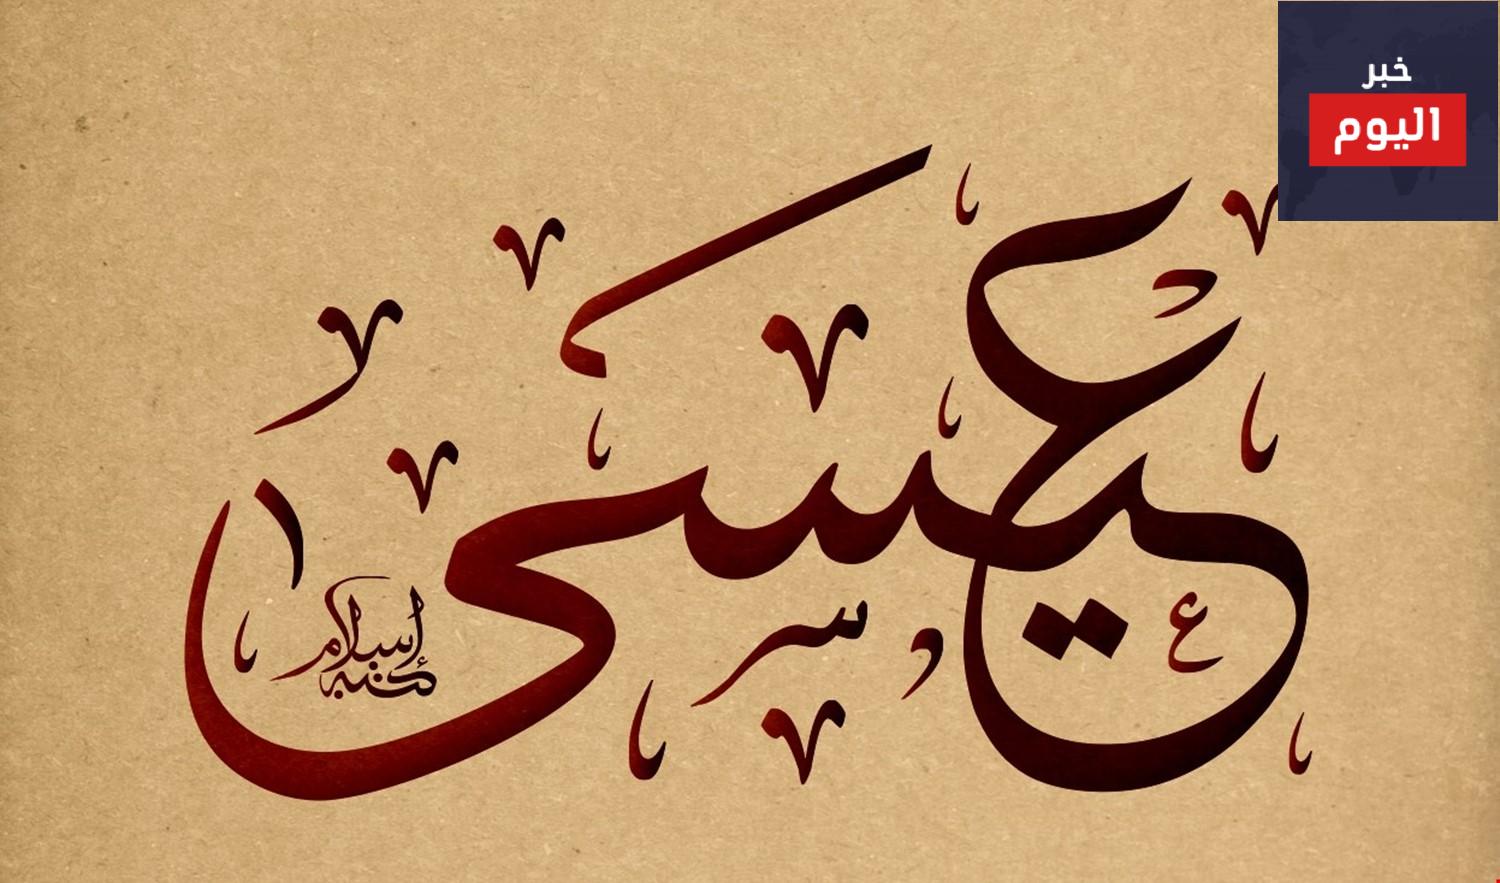 خبر
اليوم
عيسى
كتبه إسلام